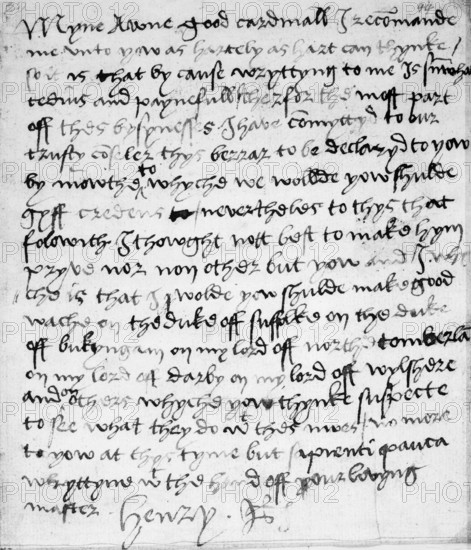 Myne Awne good cardinall I recomande
me unto yow as hartely as hart can thynke /
so it is that by cause wryttyng to me is sumwhat
tedius and paynefull therfor the most part
off thes bysynesses I have comyttyd to our
trusty conseler thys berrar to be declaryd to yow
by mowthe to whyche we wollde yow shulde
gyff credens / neverthelес to thys that
folowith I thowght nott best to make hym
pryve nor non other but yow and I whi
che is that I wolde yow shulde make good
wache on the duke off suffolke on the duke
off bukyngam on my lord off northe omberla
on my lord off darby on my lord off wylshere
and on others whyche yow thynke suspecte
to see what they do wt thes nwes / no more
to yow at thys tyme but sapienti pauca
whryttyne wt the hand off your lovyng
master Henry R